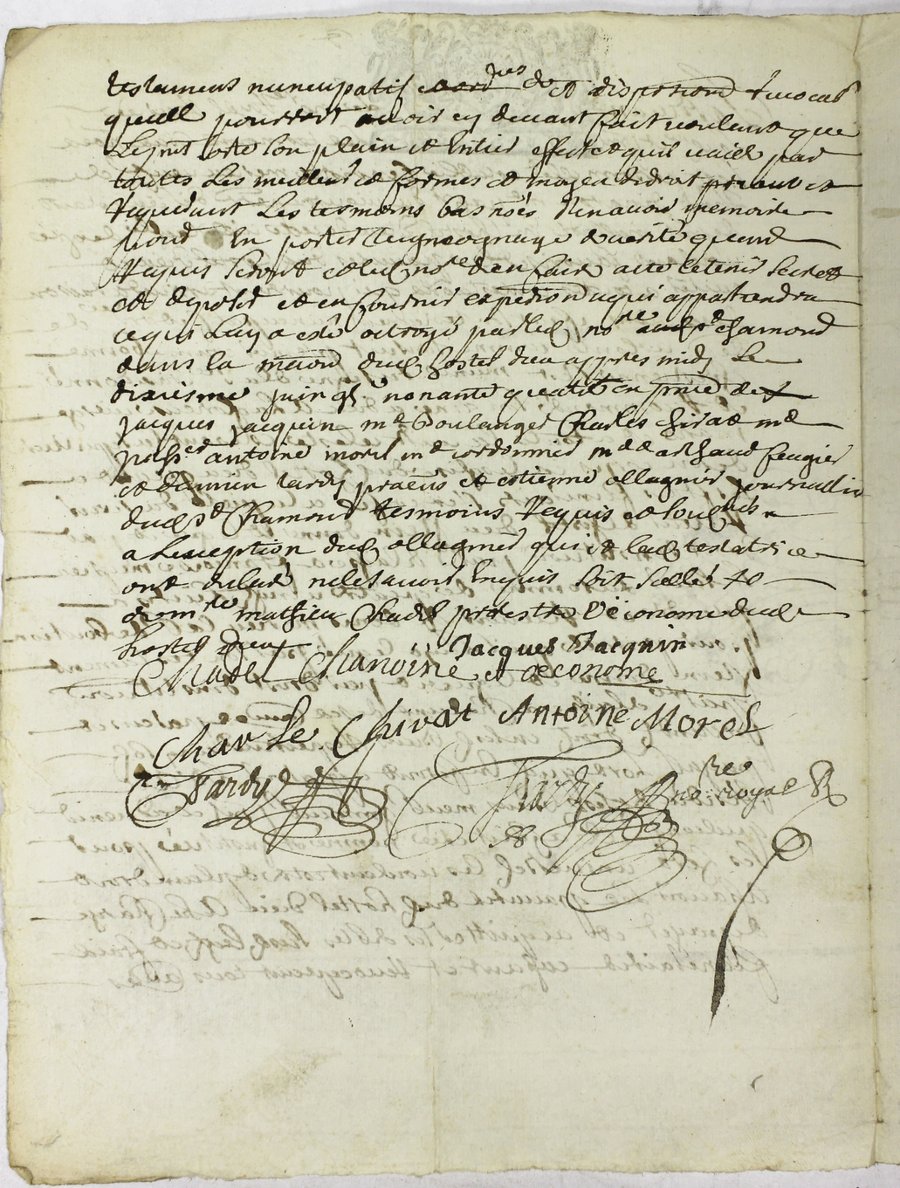 testament nuncupatif et disposition
quelle pourroit avoir cy devant fait voulant que
le pnt sorte son plain et entier effect et quil vaille par
toutes les meilleures formes et moyen de droit priant et
requerant les tesmoins bas nōes d'en avoir memoire
pour en porter tesmoignage de verité quand
requis seront et led nore d'en faire acte le tenir secret
et deposer et en fournir expedion a qui appartiendra
ce qui luy a esté octroyé par led nore aud St chamond
dans la maison dud hostel dieu apres midy le
dixiesme juin nonante quatre en pnce de
jacques jacquin me boulanger Charles chirat md
antoine morel me cordonnier
et damien tardy et estienne ollagnier journallier
dud St Chamond tesmoins requis et soubsnes
a l'exception dud ollagnier qui et lad testatrice
ont declaré ne le scavoir enquis soit scellé
mathieu Chadel prestre œconome dud
hostel dieu
Jacques Jacquin
Chadel Chanoine et œconome
Charle Chirat Antoine Morel
Tardy
Tardy nore Royal R